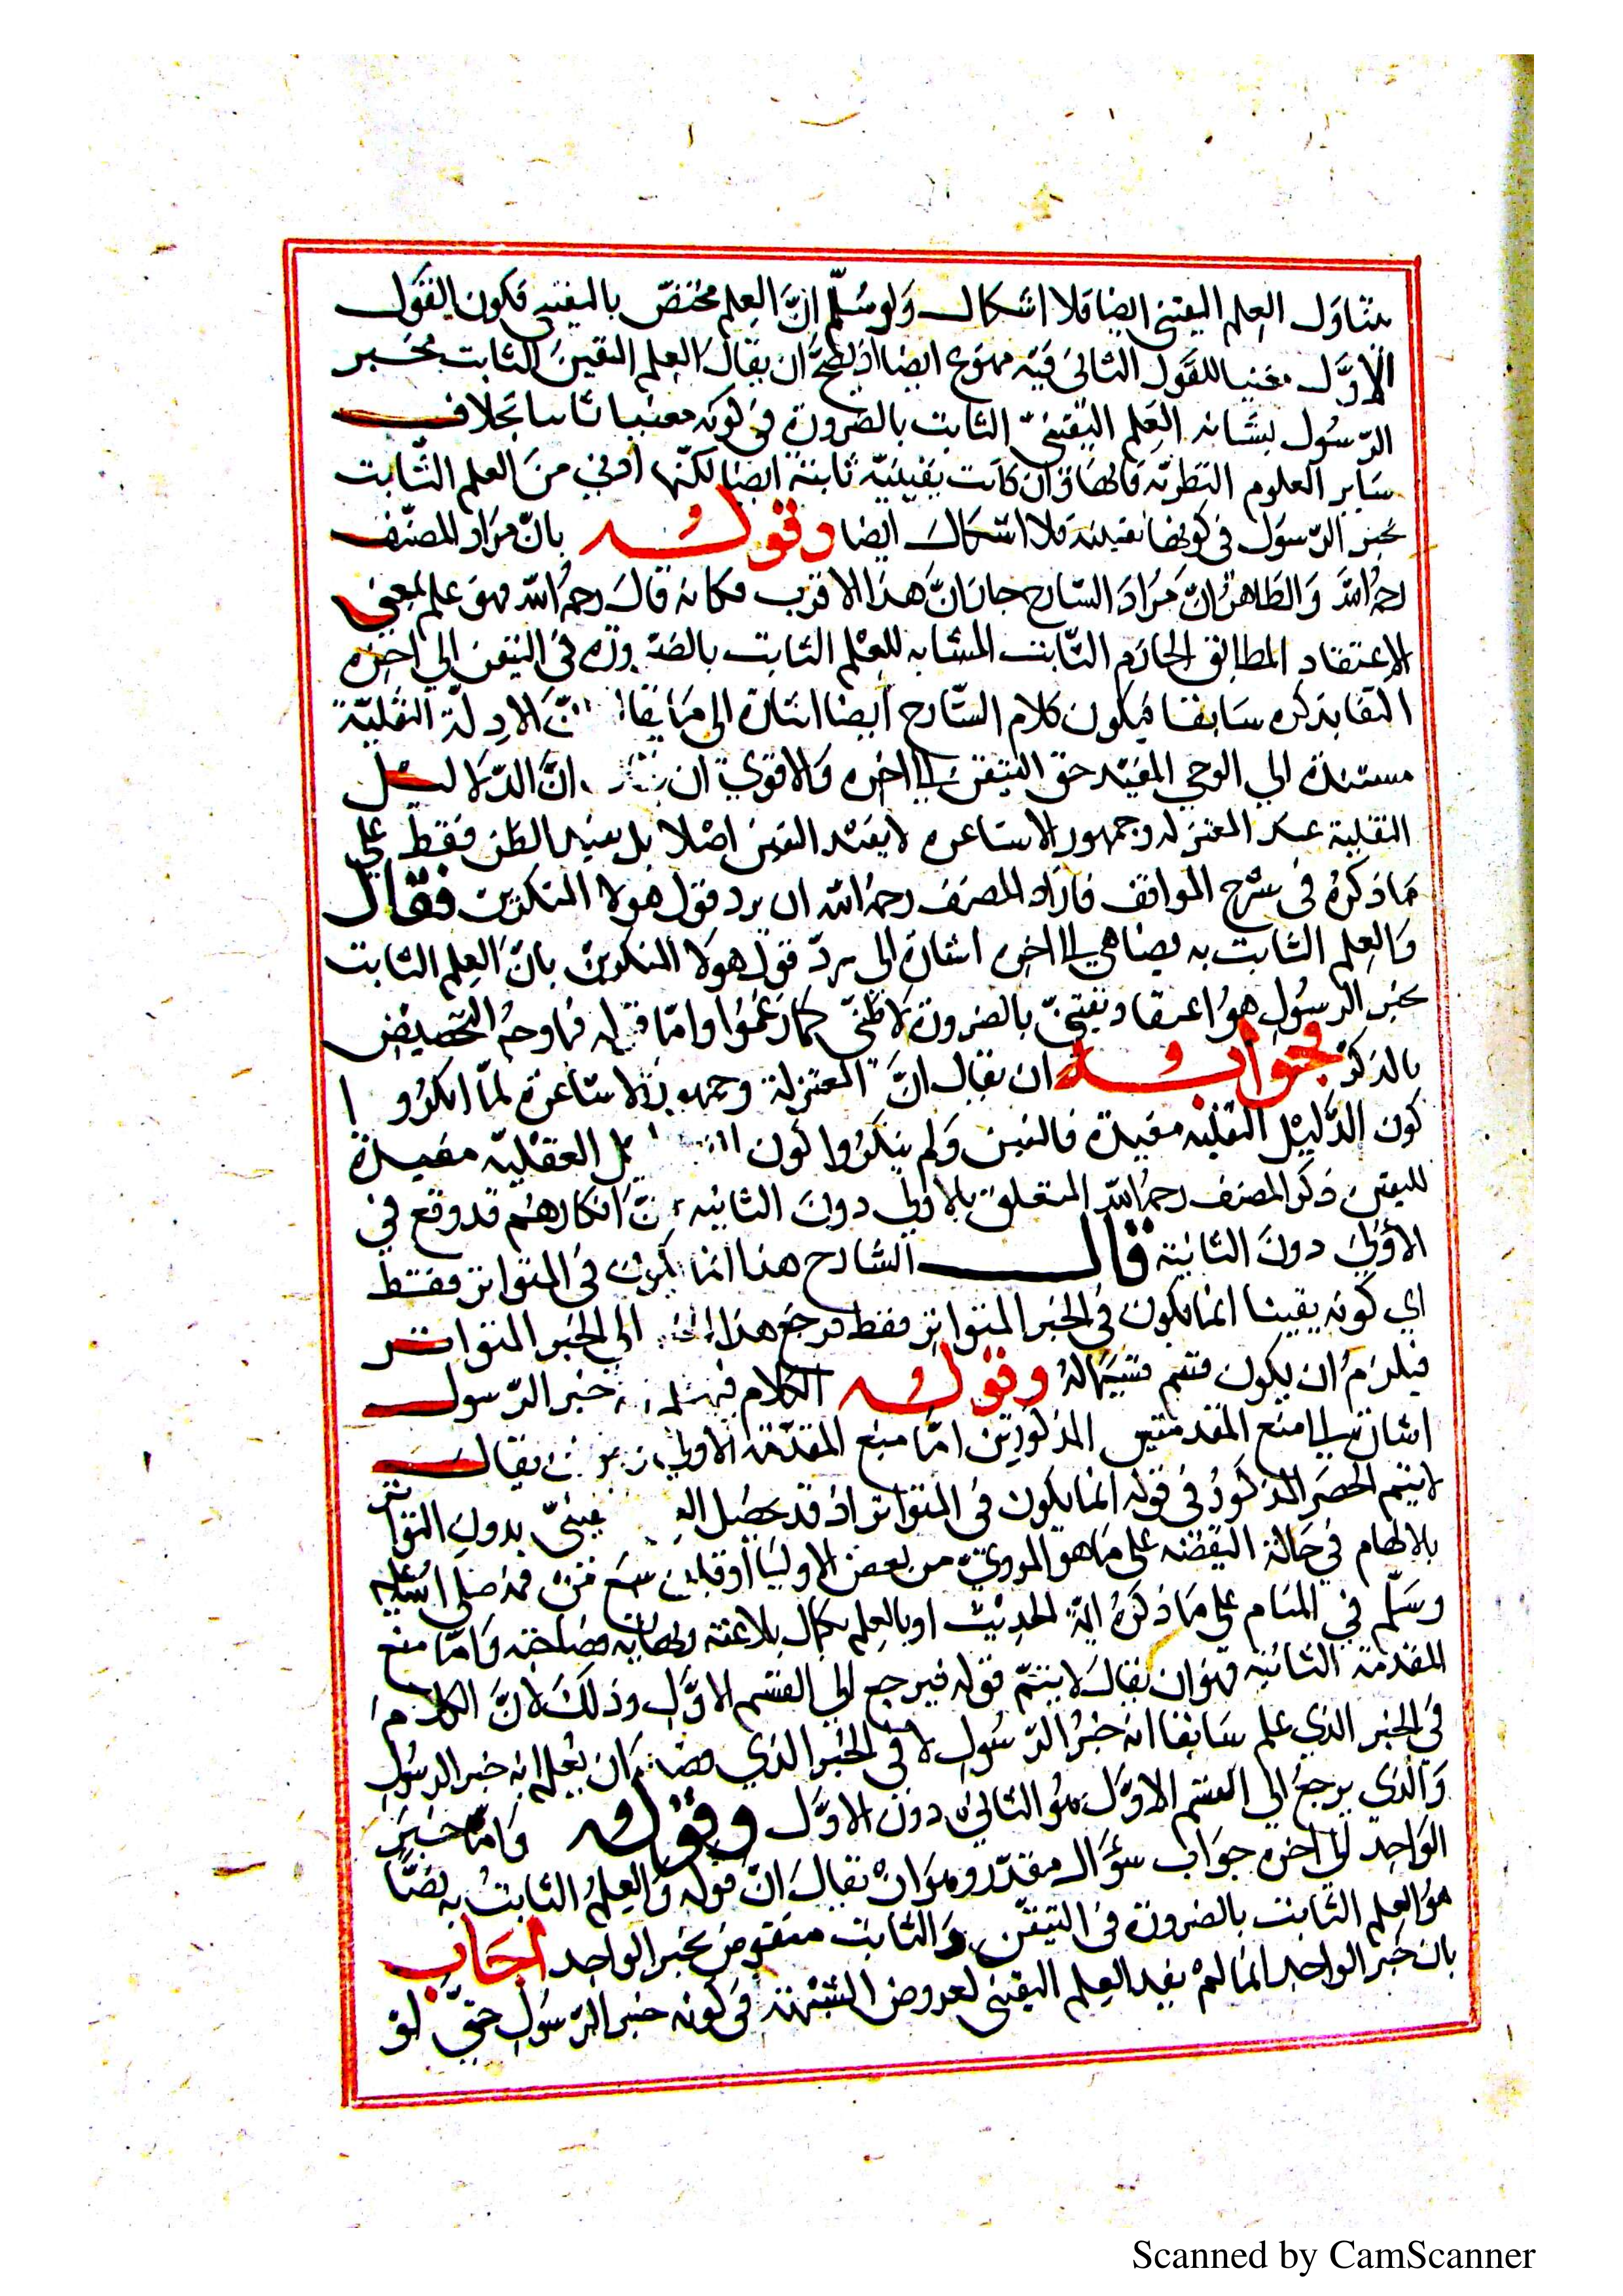 يتناول العلم اليقيني ايضا فلا اشكال ولو سلم ان العلم مختص باليقيني فكون القول
الاول مغنيا للقول الثاني فيه ممنوع ايضا اذ يصح ان يقال العلم اليقيني الثابت بخبر
الرسول يشابه العلم اليقيني الثابت بالضرورة في كونه يقينيا ثابتا بخلاف
ساير العلوم النظرية فانها وان كانت يقينية ثابتة ايضا لكنها ادني من العلم الثابت
بخبر الرسول في كونها يقينية فلا اشكال ايضا وقوله بان مراد المصنف
رحمه الله والظاهر ان مراد الشارح ان هذا الاقرب فكانه قال رحمه الله فهو علم بمعني
الاعتقاد المطابق الجازم الثابت المشابه للعلم الثابت بالضرورة في التيقن الي اخره
سابقا فيكون كلام الشارح ايضا اشارة الي الادلة النقلية
مستندة الي الوحي المفيد حق اليقين الي اخره والاقوي ان ان الدلايل
النقلية عند المعتزلة وجمهور الاشاعره لا يفيد اليقين اصلا بل يفيد الظن فقط علي
ما ذكره في شرح المواقف فاراد المصنف رحمه الله ان يرد قول هولا المنكرين فقال
والعلم الثابت به يضاهي الي اخره اشارة الي رد قول هولا المنكرين بان العلم الثابت
بخبر الرسول هو اعتقاد يقيني بالضرورة لا ظني كما زعموا واما قوله فما وجه التخصيص
بالذكر فجوابه ان يقال ان المعتزلة وجمهور الاشاعرة لما انكروا
كون الدليل النقلية مفيدة فاليقين ولم ينكروا كون العقلية مفيدة
لليقين ذكر المصنف رحمه الله المتعلق بالاولي دون الثانيه ان انكارهم قد وقع في
الاولي دون الثانية قال الشارح هذا انما يكون في المتواتر فقط
اي كونه يقينا انما يكون في الخبر المتواتر فقط فرجع هذا الي الخبر المتواتر
فيلزم ان يكون قسم قسيما له وقوله الكلام فيما خبر الرسول
اشارة الي منع المقدمتين المذكورتين اما منع المقدمة الاولي يقال
لا يتم الحصر المذكور في قوله انما يكون في المتواتر اذ قد يحصل يقيني بدون التواتر
بالالهام في حالة اليقظة علي ما هو المروي من بعض الاوليا او صلي الله عليه
وسلم في المنام علي ما ذكره ايمة الحديث او بالعلم بكمال بلاغته ونهاية فصاحته واما منع
المقدمة الثانية فهو ان يقال لا يتم قوله فيرجع الي القسم الاول وذلك لان الكلام
في الخبر الذي علم سابقا انه خبر الرسول لا في الخبر الذي ان يعلم انه خبر الرسول
والذي يرجع الي القسم الاول هو الثاني دون الاول وقوله واما خبر
الواحد الي اخره جواب سؤال مقدر وهو ان يقال ان قوله والعلم الثابت به ايضا
هو العلم الثابت بالضرورة في التيقن والثابت منقوض بخبر الواحد اجاب
بان خبر الواحد انما لم يفيد العلم اليقيني لعروض الشبهة في كونه خبر الرسول حتي لو
Scanned by CamScanner